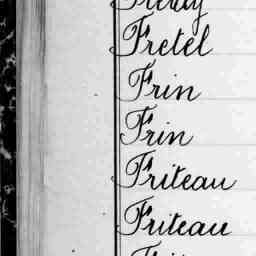 Fretel
Frin
Frin
Friteau
Friteau